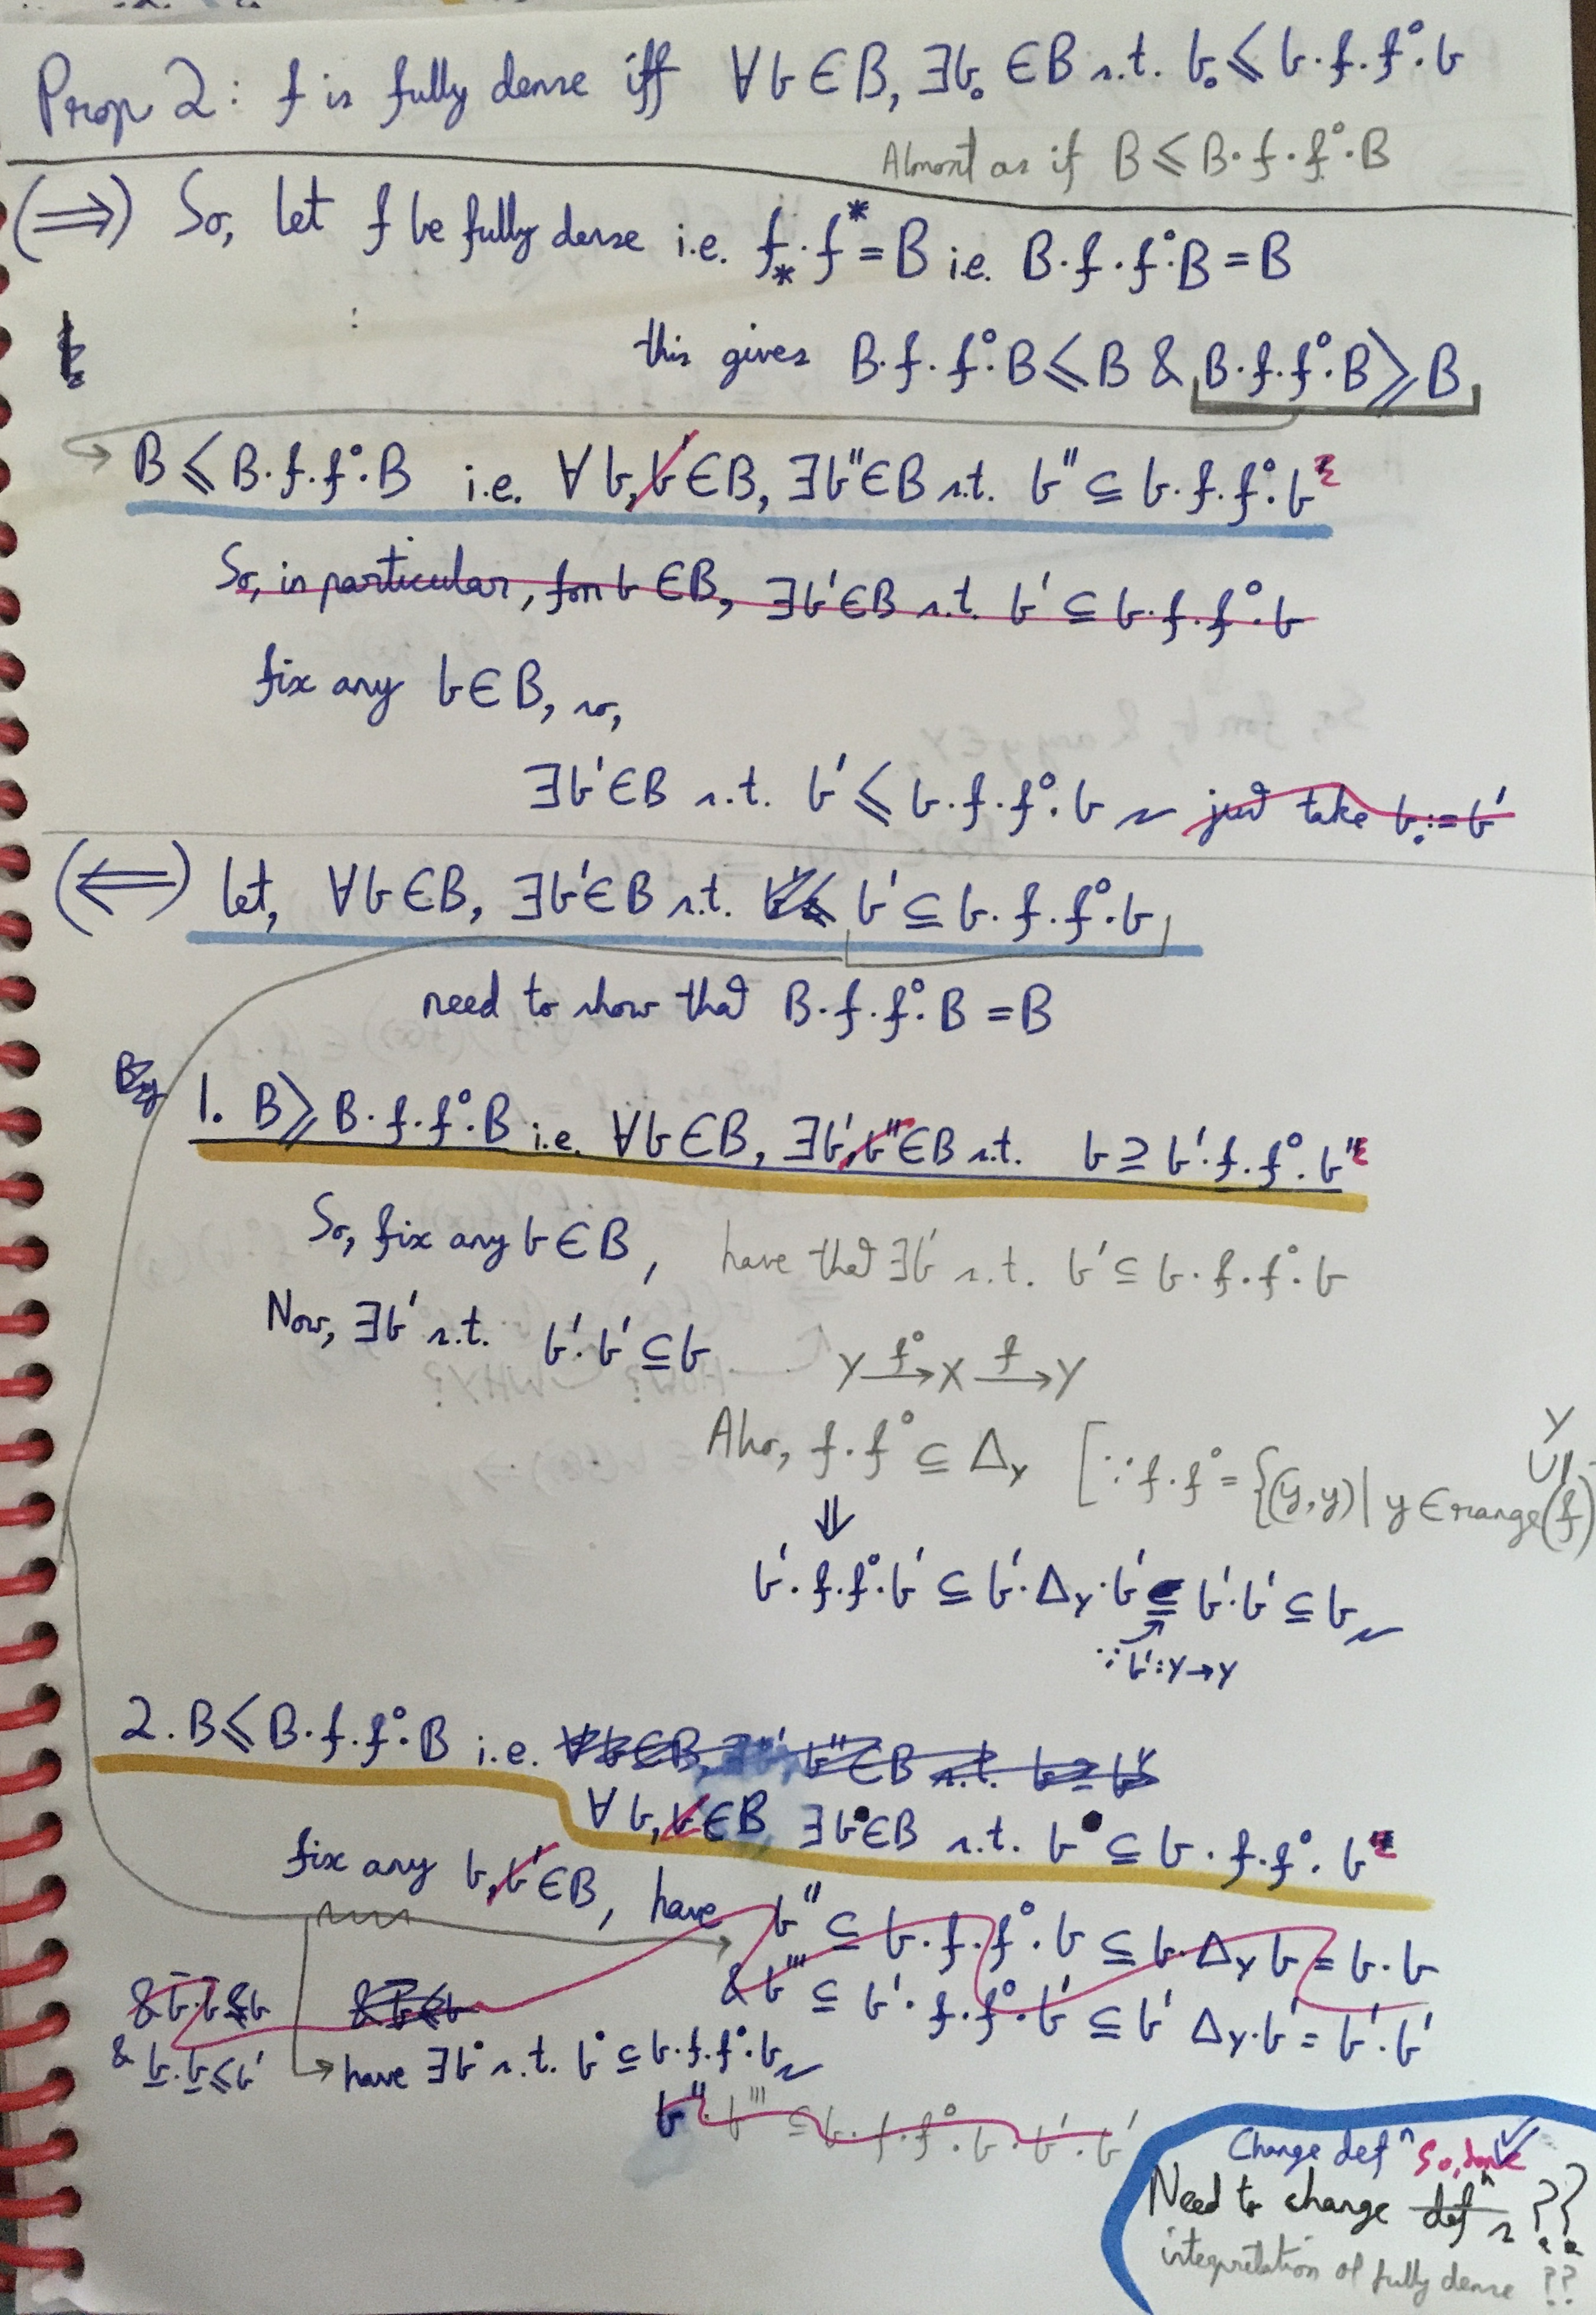 Prop 2: f is fully dense iff ∀b∈B, ∃b₀∈B s.t. b₀⩽b·f·f°·b
Almost as if B⩽B·f·f°·B
(⟹) So, let f be fully dense i.e. f_*·f^*=B i.e. B·f·f°·B=B
this gives B·f·f°·B⩽B & B·f·f°·B⩾B
B⩽B·f·f°·B i.e. ∀b,b'∈B, ∃b''∈B s.t. b''⊆b·f·f°·b
So, in particular, for b∈B, ∃b'∈B s.t. b'⊆b·f·f°·b
fix any b∈B, so,
∃b'∈B s.t. b'⩽b·f·f°·b just take b₀:=b'
(⟸) let, ∀b∈B, ∃b'∈B s.t. b'⊆b·f·f°·b
need to show that B·f·f°·B=B
By
1. B⩾B·f·f°·B i.e. ∀b∈B, ∃b',b''∈B s.t. b⊇b'·f·f°·b'
So, fix any b∈B, have that ∃b' s.t. b'⊆b·f·f°·b
Now, ∃b' s.t. b'·b'⊆b
Y —f°→ X —f→ Y
Also, f·f°⊆Δ_Y [∵f·f°={(y,y)| y∈range(f)
Y
∪|
⇓
b'·f·f°·b'⊆b'·Δ_Y·b'⊆b'·b'⊆b
∵b':Y→Y
2. B⩽B·f·f°·B i.e. ∀b∈B, b''∈B s.t.
∀b,b'∈B ∃b•∈B s.t. b•⊆b·f·f°·b
fix any b,b'∈B, have b''⊆b·f·f°·b⊆b·Δ_Y b=b·b
& b'''⊆b'·f·f°·b'⊆b' Δ_Y·b'=b'·b'
& b·b⩽b'
have ∃b• s.t. b•⊆b·f·f°·b
b''·b'''⊆b·f·f°·b·b'·b'
Change defⁿ So, done
Need to change defⁿs ??
interpretation of fully dense ??